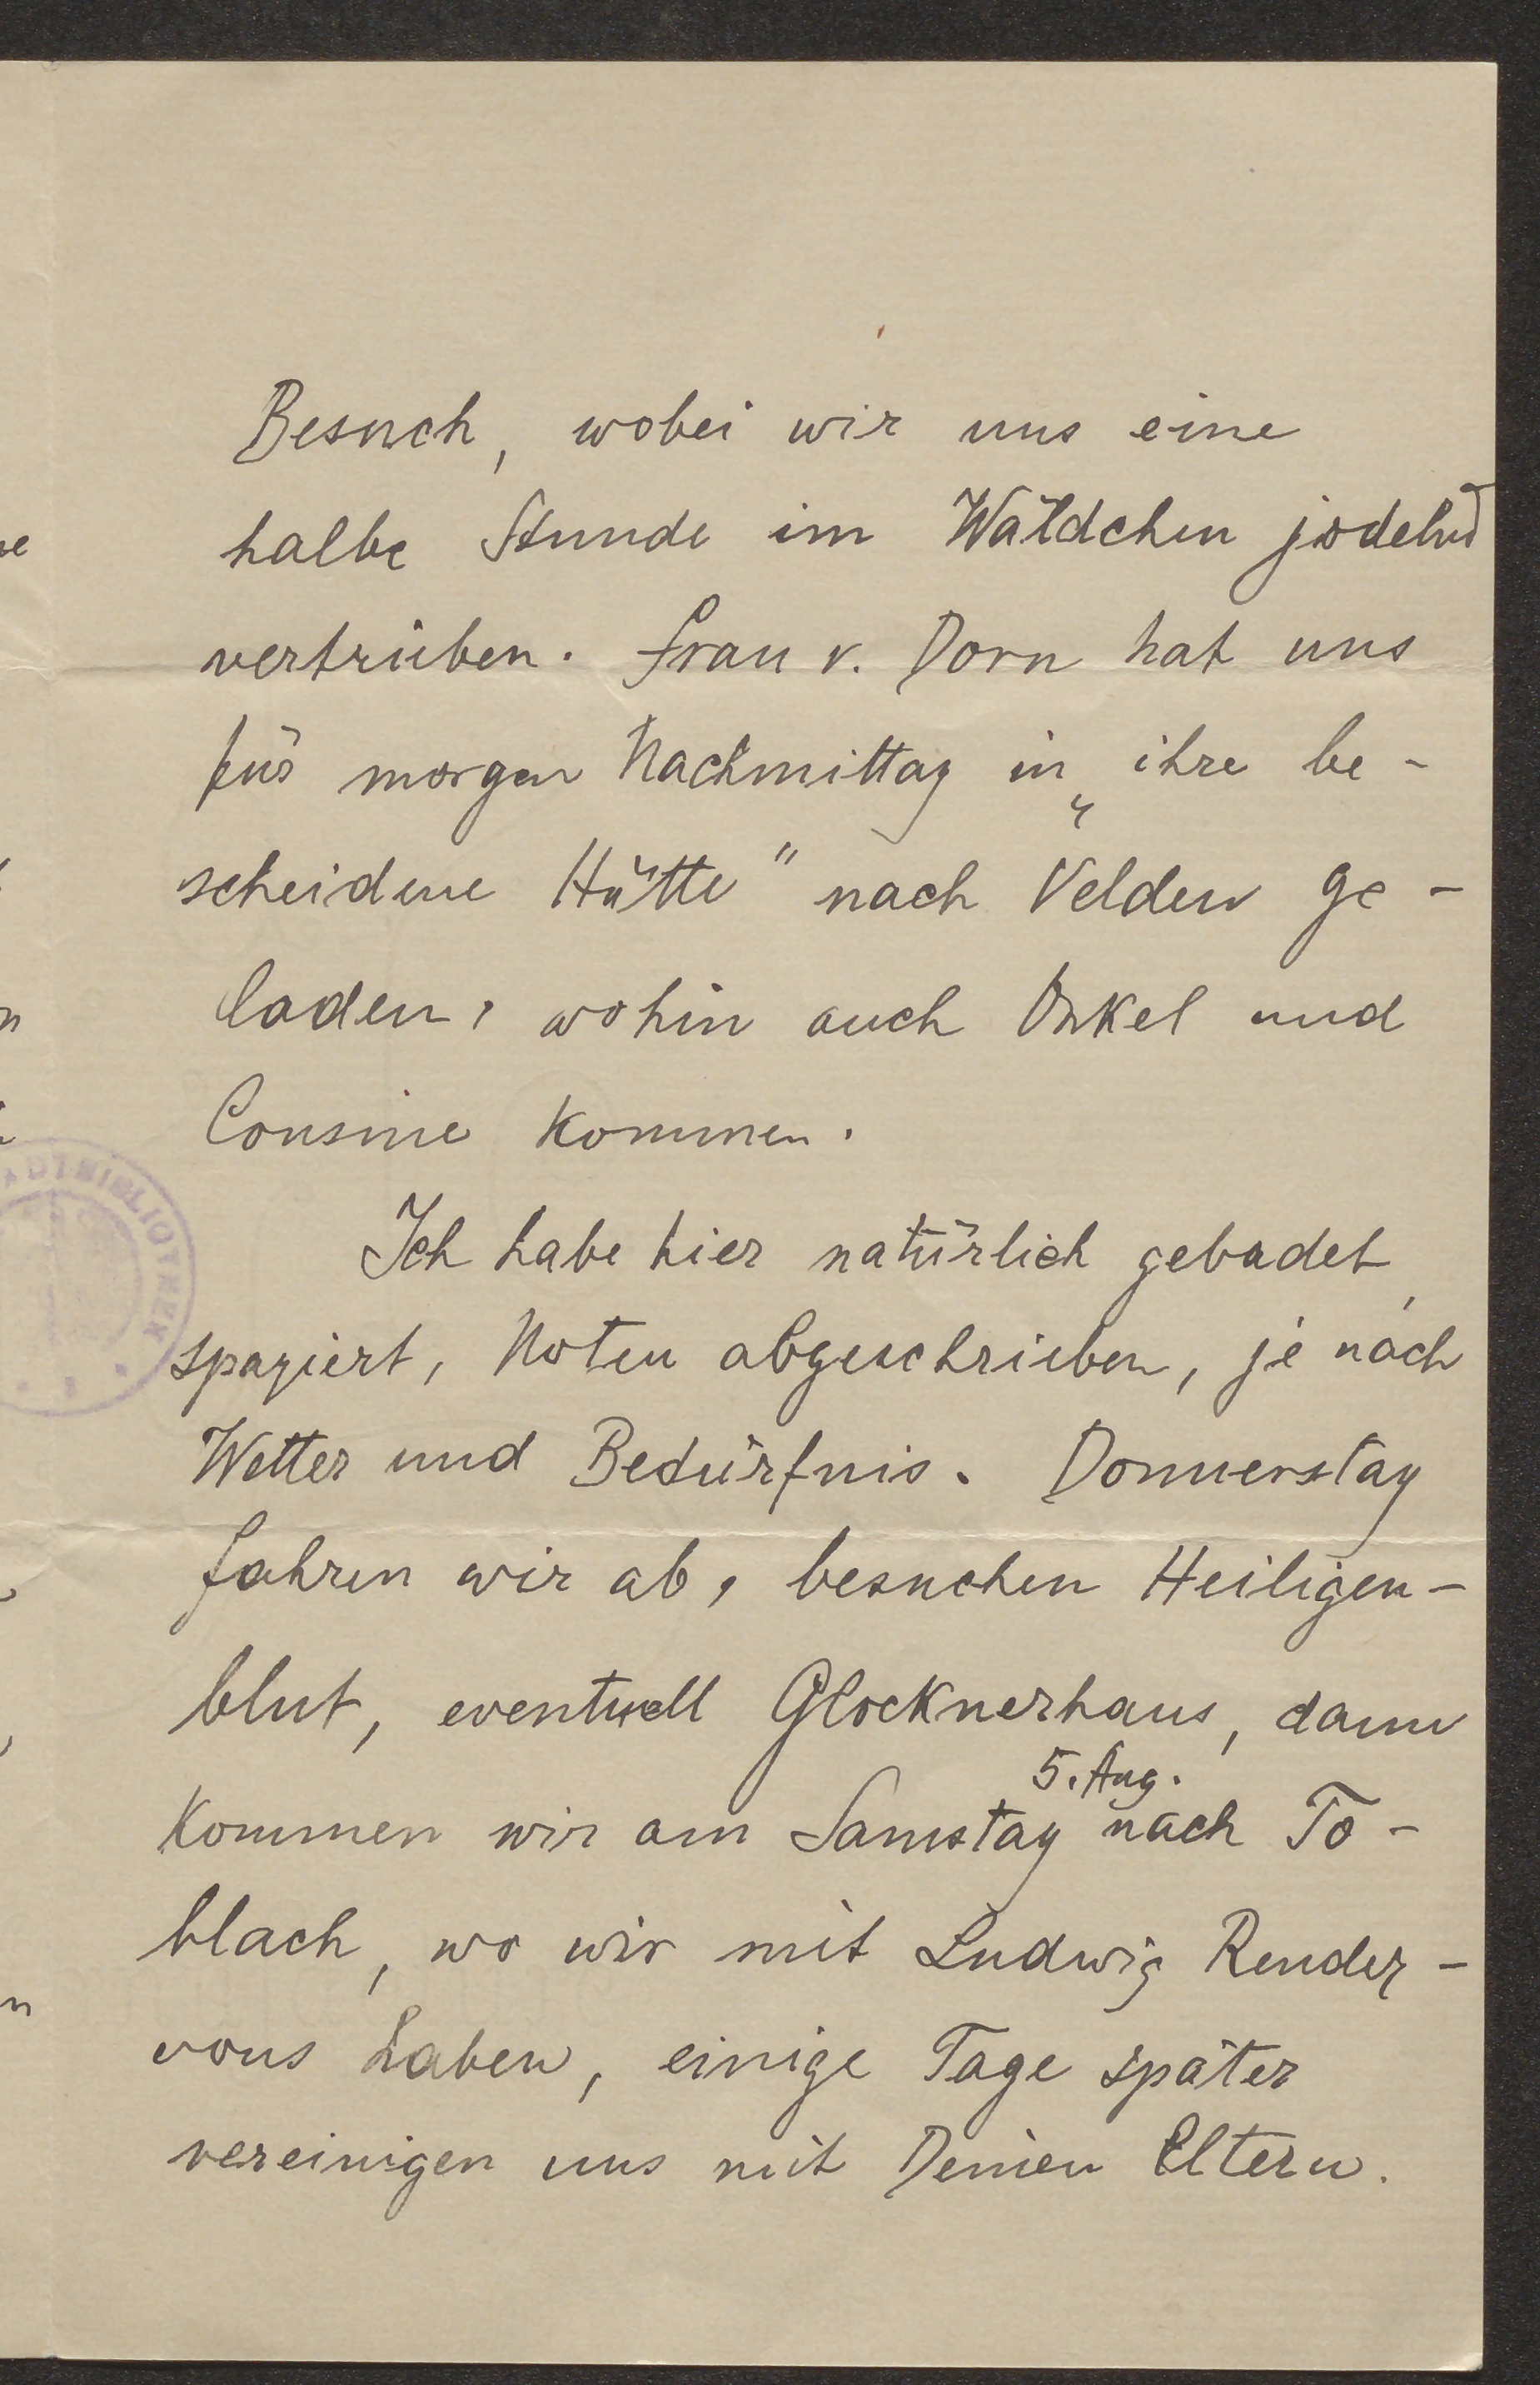 Besuch, wobei wir uns eine
halbe Stunde im Wäldchen jodelnd
vertrieben. Frau v. Dorn hat uns
für morgen Nachmittag in „ihre be-
scheidene Hütte" nach Velden ge-
laden, wohin auch Onkel und
Cousine kommen.
Ich habe hier natürlich gebadet,
spaziert, Noten abgeschrieben, je nach
Wetter und Bedürfnis. Donnerstag
fahren wir ab, besuchen Heiligen-
blut, eventuell Glocknerhaus, dann
5. Aug.
kommen wir am Samstag nach To-
blach, wo wir mit Ludwig Rendez-
vous haben, einige Tage später
vereinigen uns mit Deinen Eltern.